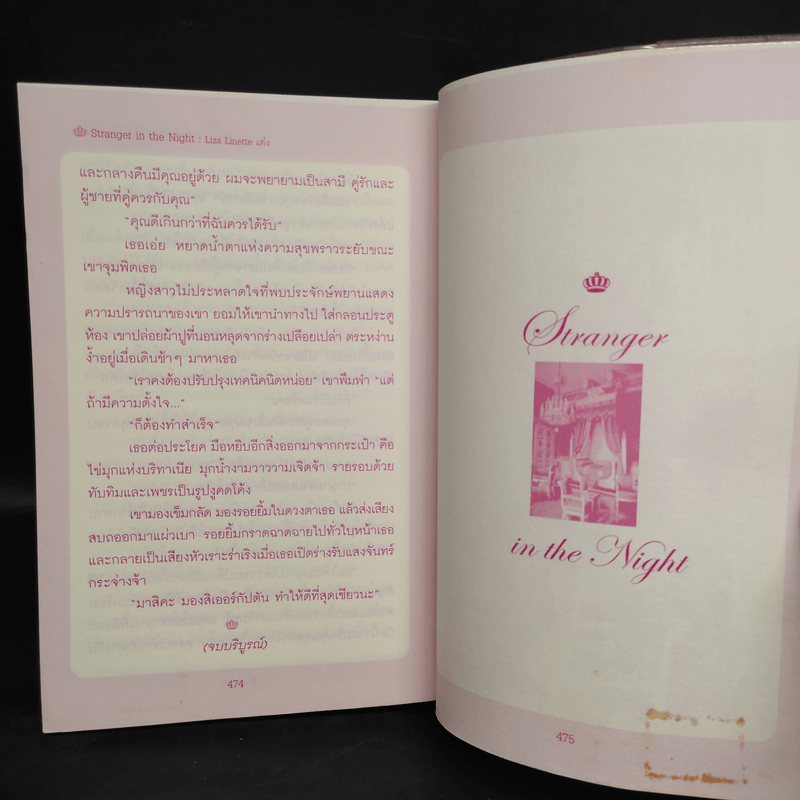 Stranger in the Night : Liza Linette แต่ง
และกลางคืนมีคุณอยู่ด้วย ผมจะพยายามเป็นสามี คู่รักและ
ผู้ชายที่คู่ควรกับคุณ”
“คุณดีเกินกว่าที่ฉันควรได้รับ”
เธอเอ่ย หยาดน้ำตาแห่งความสุขพราวระยับขณะ
เขาจุมพิตเธอ
หญิงสาวไม่ประหลาดใจที่พบประจักษ์พยานแสดง
ความปรารถนาของเขา ยอมให้เขานำทางไป ใส่กลอนประตู
ห้อง เขาปล่อยผ้าปูที่นอนหลุดจากร่างเปลือยเปล่า ตระหง่าน
ง้ำอยู่เมื่อเดินช้าๆ มาหาเธอ
“เราคงต้องปรับปรุงเทคนิคนิดหน่อย” เขาพึมพำ “แต่
ถ้ามีความตั้งใจ...”
“ก็ต้องทำสำเร็จ”
เธอต่อประโยค มือหยิบอีกสิ่งออกมาจากกระเป๋า คือ
ไข่มุกแห่งบริทาเนีย มุกน้ำงามวาววามเจิดจ้า รายรอบด้วย
ทับทิมและเพชรเป็นรูปงูคดโค้ง
เขามองเข็มกลัด มองรอยยิ้มในดวงตาเธอ แล้วส่งเสียง
สบถออกมาแผ่วเบา รอยยิ้มกราดฉาดฉายไปทั่วใบหน้าเธอ
และกลายเป็นเสียงหัวเราะร่าเริงเมื่อเธอเปิดร่างรับแสงจันทร์
กระจ่างจ้า
“มาสิคะ มองสิเออร์กัปตัน ทำให้ดีที่สุดเชียวนะ”
(จบบริบูรณ์)
474
Stranger
in the Night
475